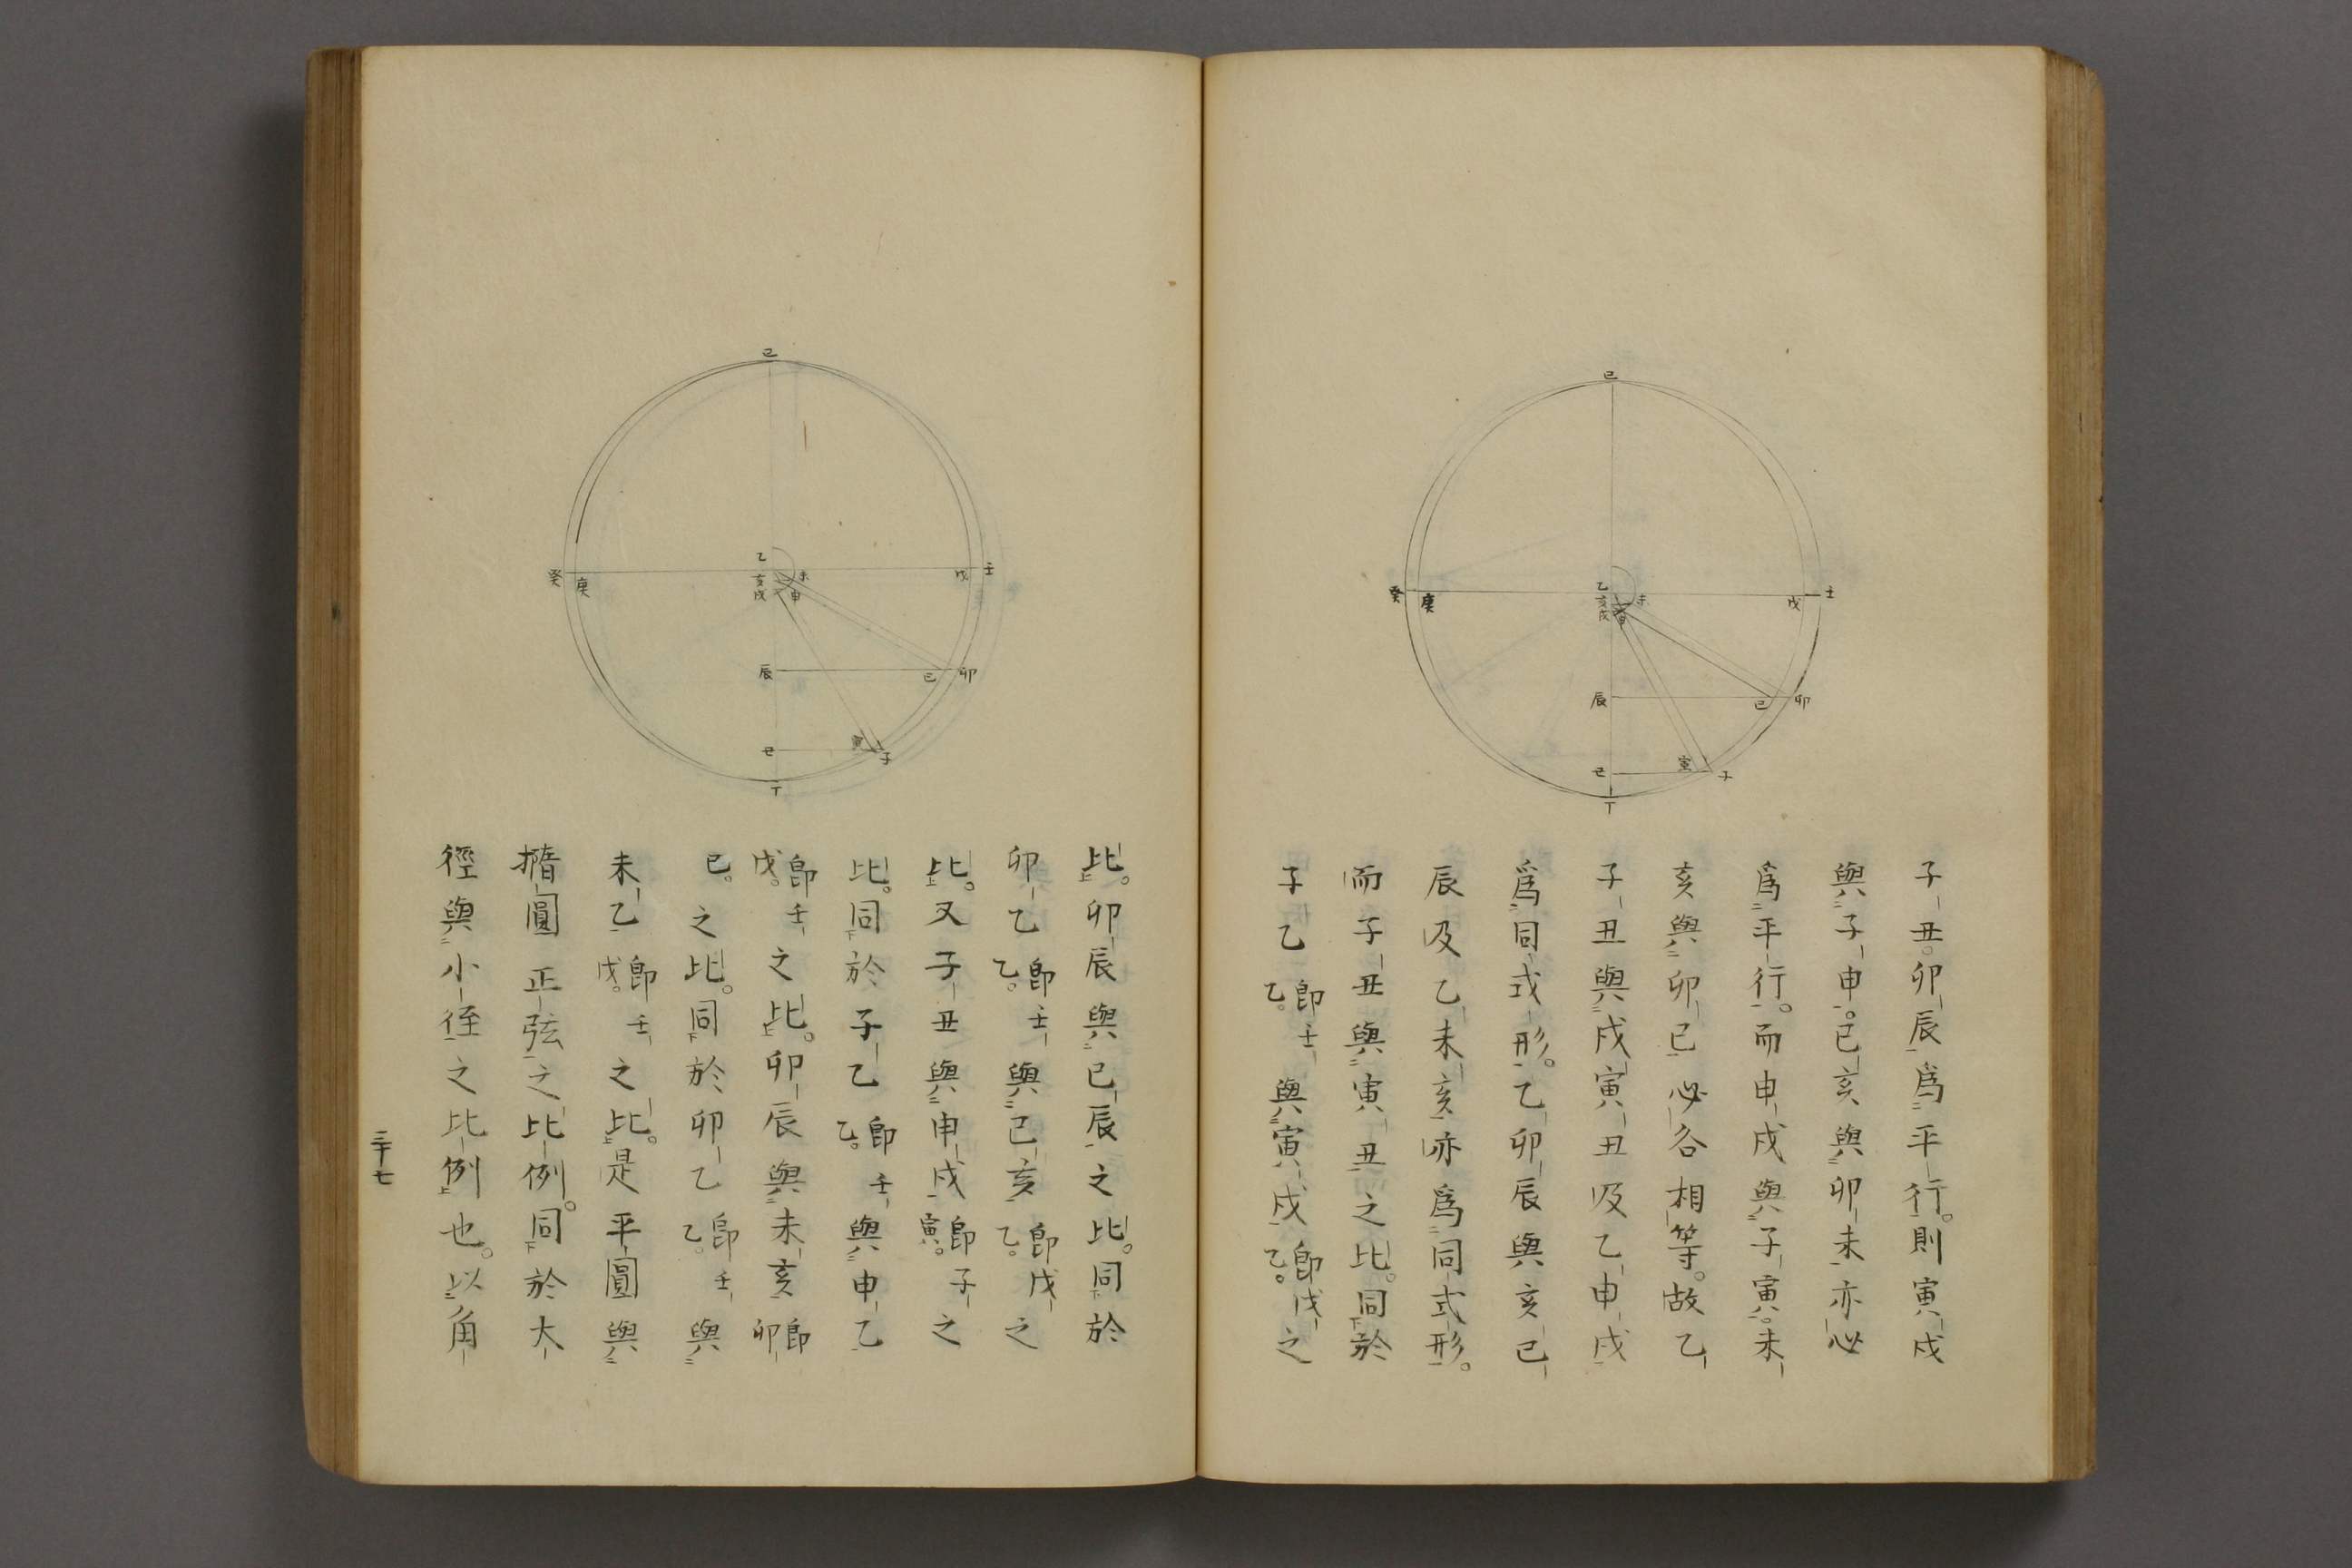 子丑。卯辰爲平行。則寅戌
與子申。巳亥與卯未亦必
爲平行。而申戌與子寅。未
亥與卯巳必各相等。故乙
子丑與戌寅丑及乙申戌
爲同式形。乙卯辰與亥巳
辰及乙未亥亦爲同式形。
而子丑與寅丑之比。同於
子乙卽壬乙。與寅戌卽戊乙。之
比。卯辰與巳辰之比。同於
卯乙卽壬乙。與巳亥卽戊乙。之
比。又子丑與申戌卽子寅。之
比。同於子乙卽壬乙。與申乙
卽壬戊。之比。卯辰與未亥卽卯
巳。之比。同於卯乙卽壬乙。與
未乙卽壬戊。之比。是平圓與
撱圓正弦之比例。同於大
徑與小徑之比例也。以角
三十七
己
乙
亥
戌
未
申
癸
庚
戊
壬
辰
巳
卯
丑
寅
子
丁
己
乙
亥
戌
未
申
癸
庚
戊
壬
辰
巳
卯
丑
寅
子
丁